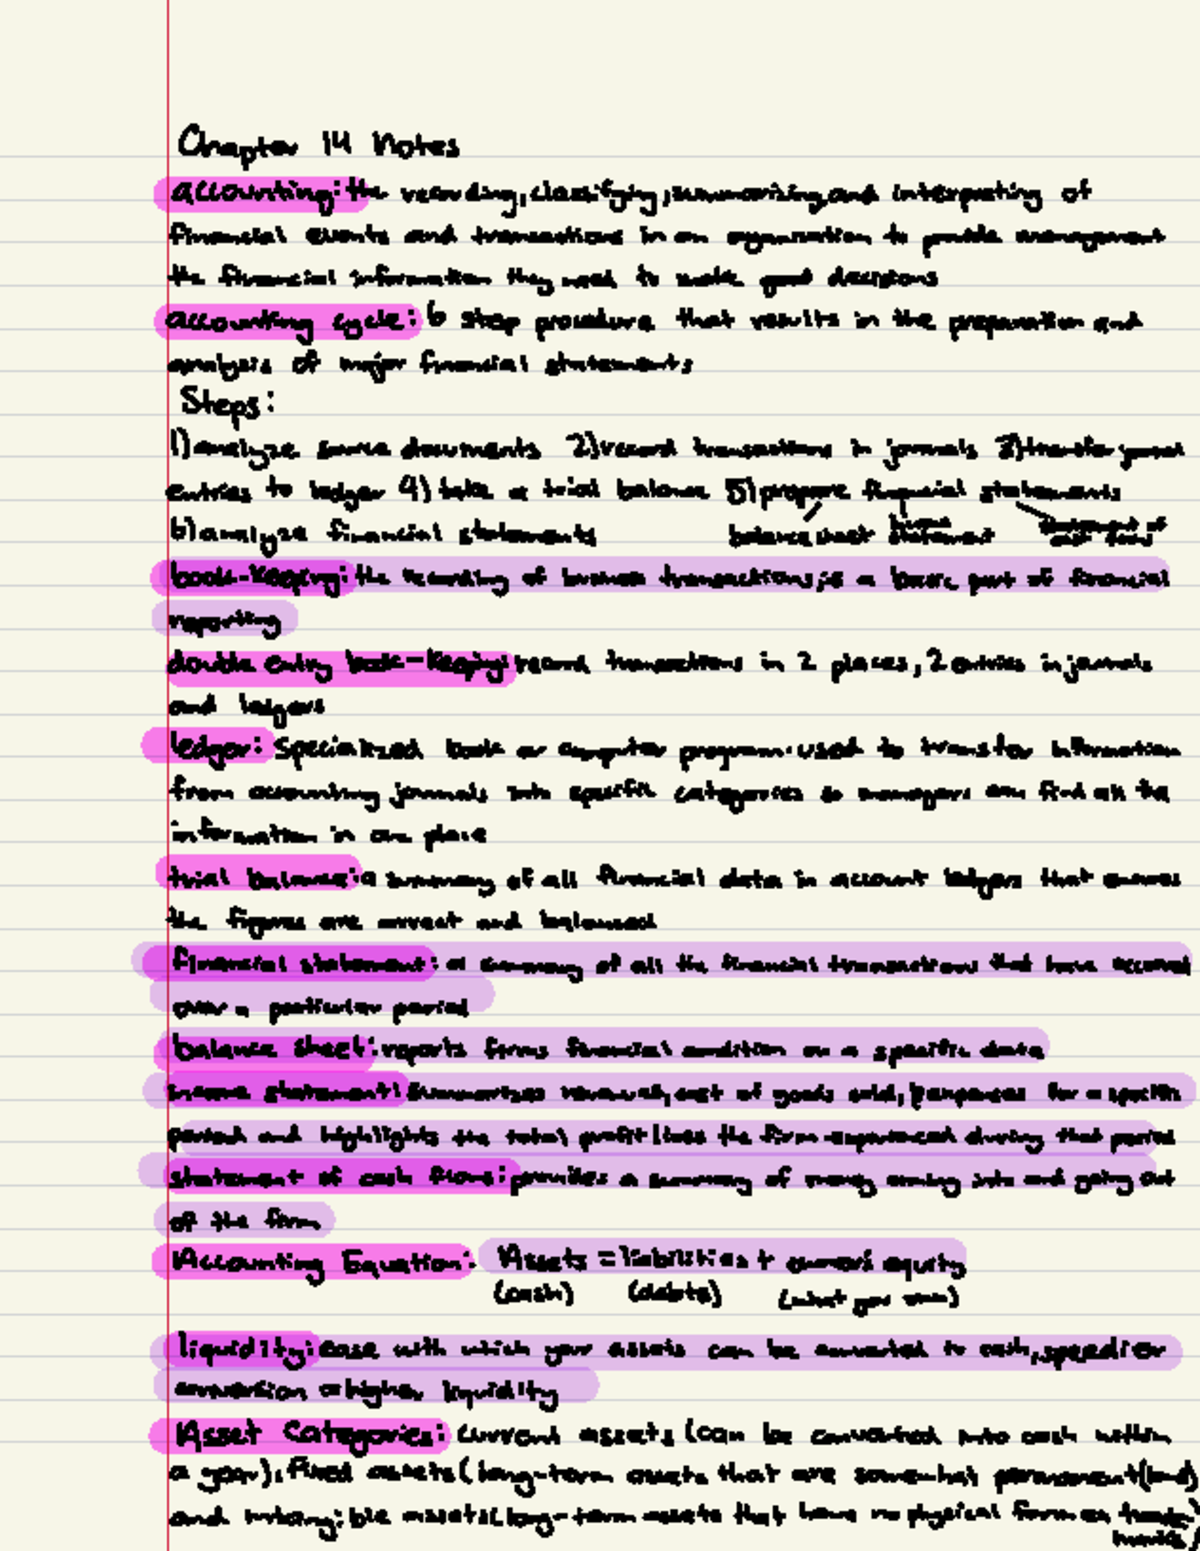 Chapter 14 Notes
accounting: the recording, classifying, summarizing, and interpreting of
financial events and transactions in an organization to provide management
the financial information they need to make good decisions
accounting cycle: 6 step procedure that results in the preparation and
analysis of major financial statements
Steps:
1) analyze source documents 2) record transactions in journals 3) transfer journal
entries to ledger 4) take a trial balance 5) prepare financial statements
6) analyze financial statements balance sheet income statement statement of cash flows
book-keeping: the recording of business transactions, is a basic part of financial
reporting
double entry book-keeping: record transactions in 2 places, 2 entries in journals
and ledgers
ledger: specialized book or computer program used to transfer information
from accounting journals into specific categories so managers can find all the
information in one place
trial balance: a summary of all financial data in account ledgers that ensures
the figures are correct and balanced
financial statement: a summary of all the financial transactions that have occurred
over a particular period
balance sheet: reports firms financial condition on a specific date
income statement: summarizes revenues, cost of goods sold, expenses for a specific
period and highlights the total profit/loss the firm experienced during that period
statement of cash flows: provides a summary of money coming into and going out
of the firm
Accounting Equation: Assets = liabilities + owners equity
(cash) (debts) (what you own)
liquidity: ease with which your assets can be converted to cash, speedier
conversion = higher liquidity
Asset Categories: current assets (can be converted into cash within
a year), fixed assets (long-term assets that are somewhat permanent (land)
and intangible assets (long-term assets that have no physical form ex